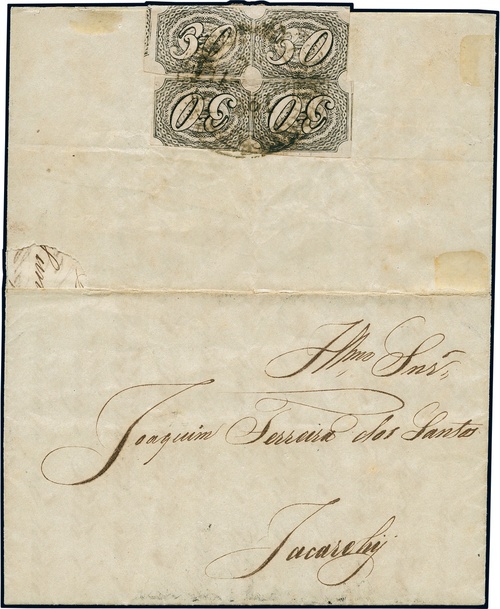 30 30
30 30
Illmo Snr.
Joaquim Ferreira dos Santos
Jacarehy